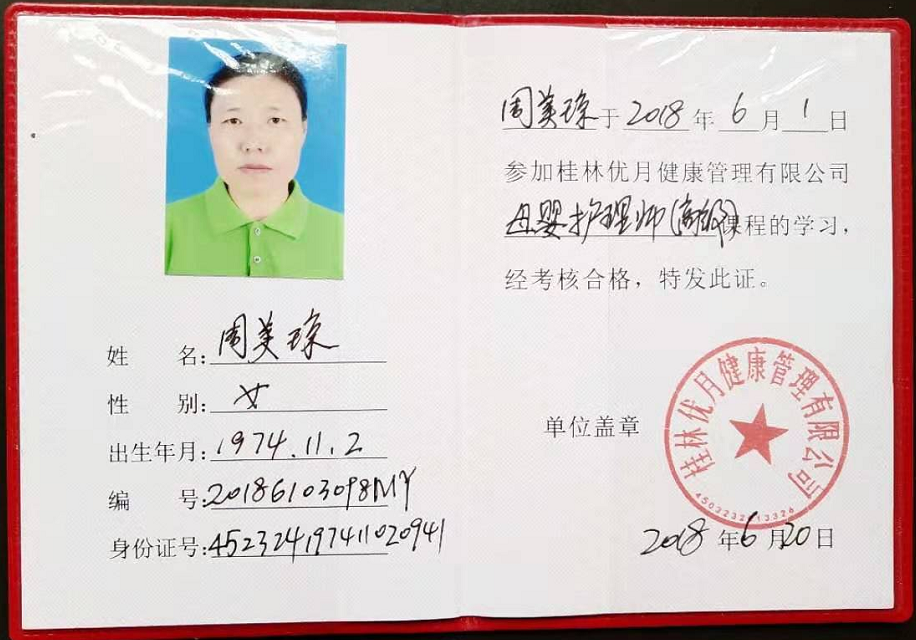 姓 名:周美琼
性 别:女
出生年月:1974.11.2
编 号:20186103098MY
身份证号:452324197411020941
周美琼于2018年6月1日
参加桂林优月健康管理有限公司
母婴护理师(高级)课程的学习，
经考核合格，特发此证。
单位盖章
桂林优月健康管理有限公司
2018年6月20日